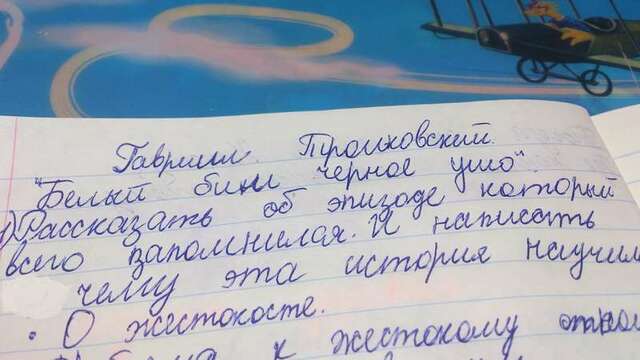 Гавриил Троиховский.
"Белый бим черное ухо".
1) Рассказать об эпизоде который
всего запомнился. И написать
чему эта история научил
• О жестокосте.
к жестокому